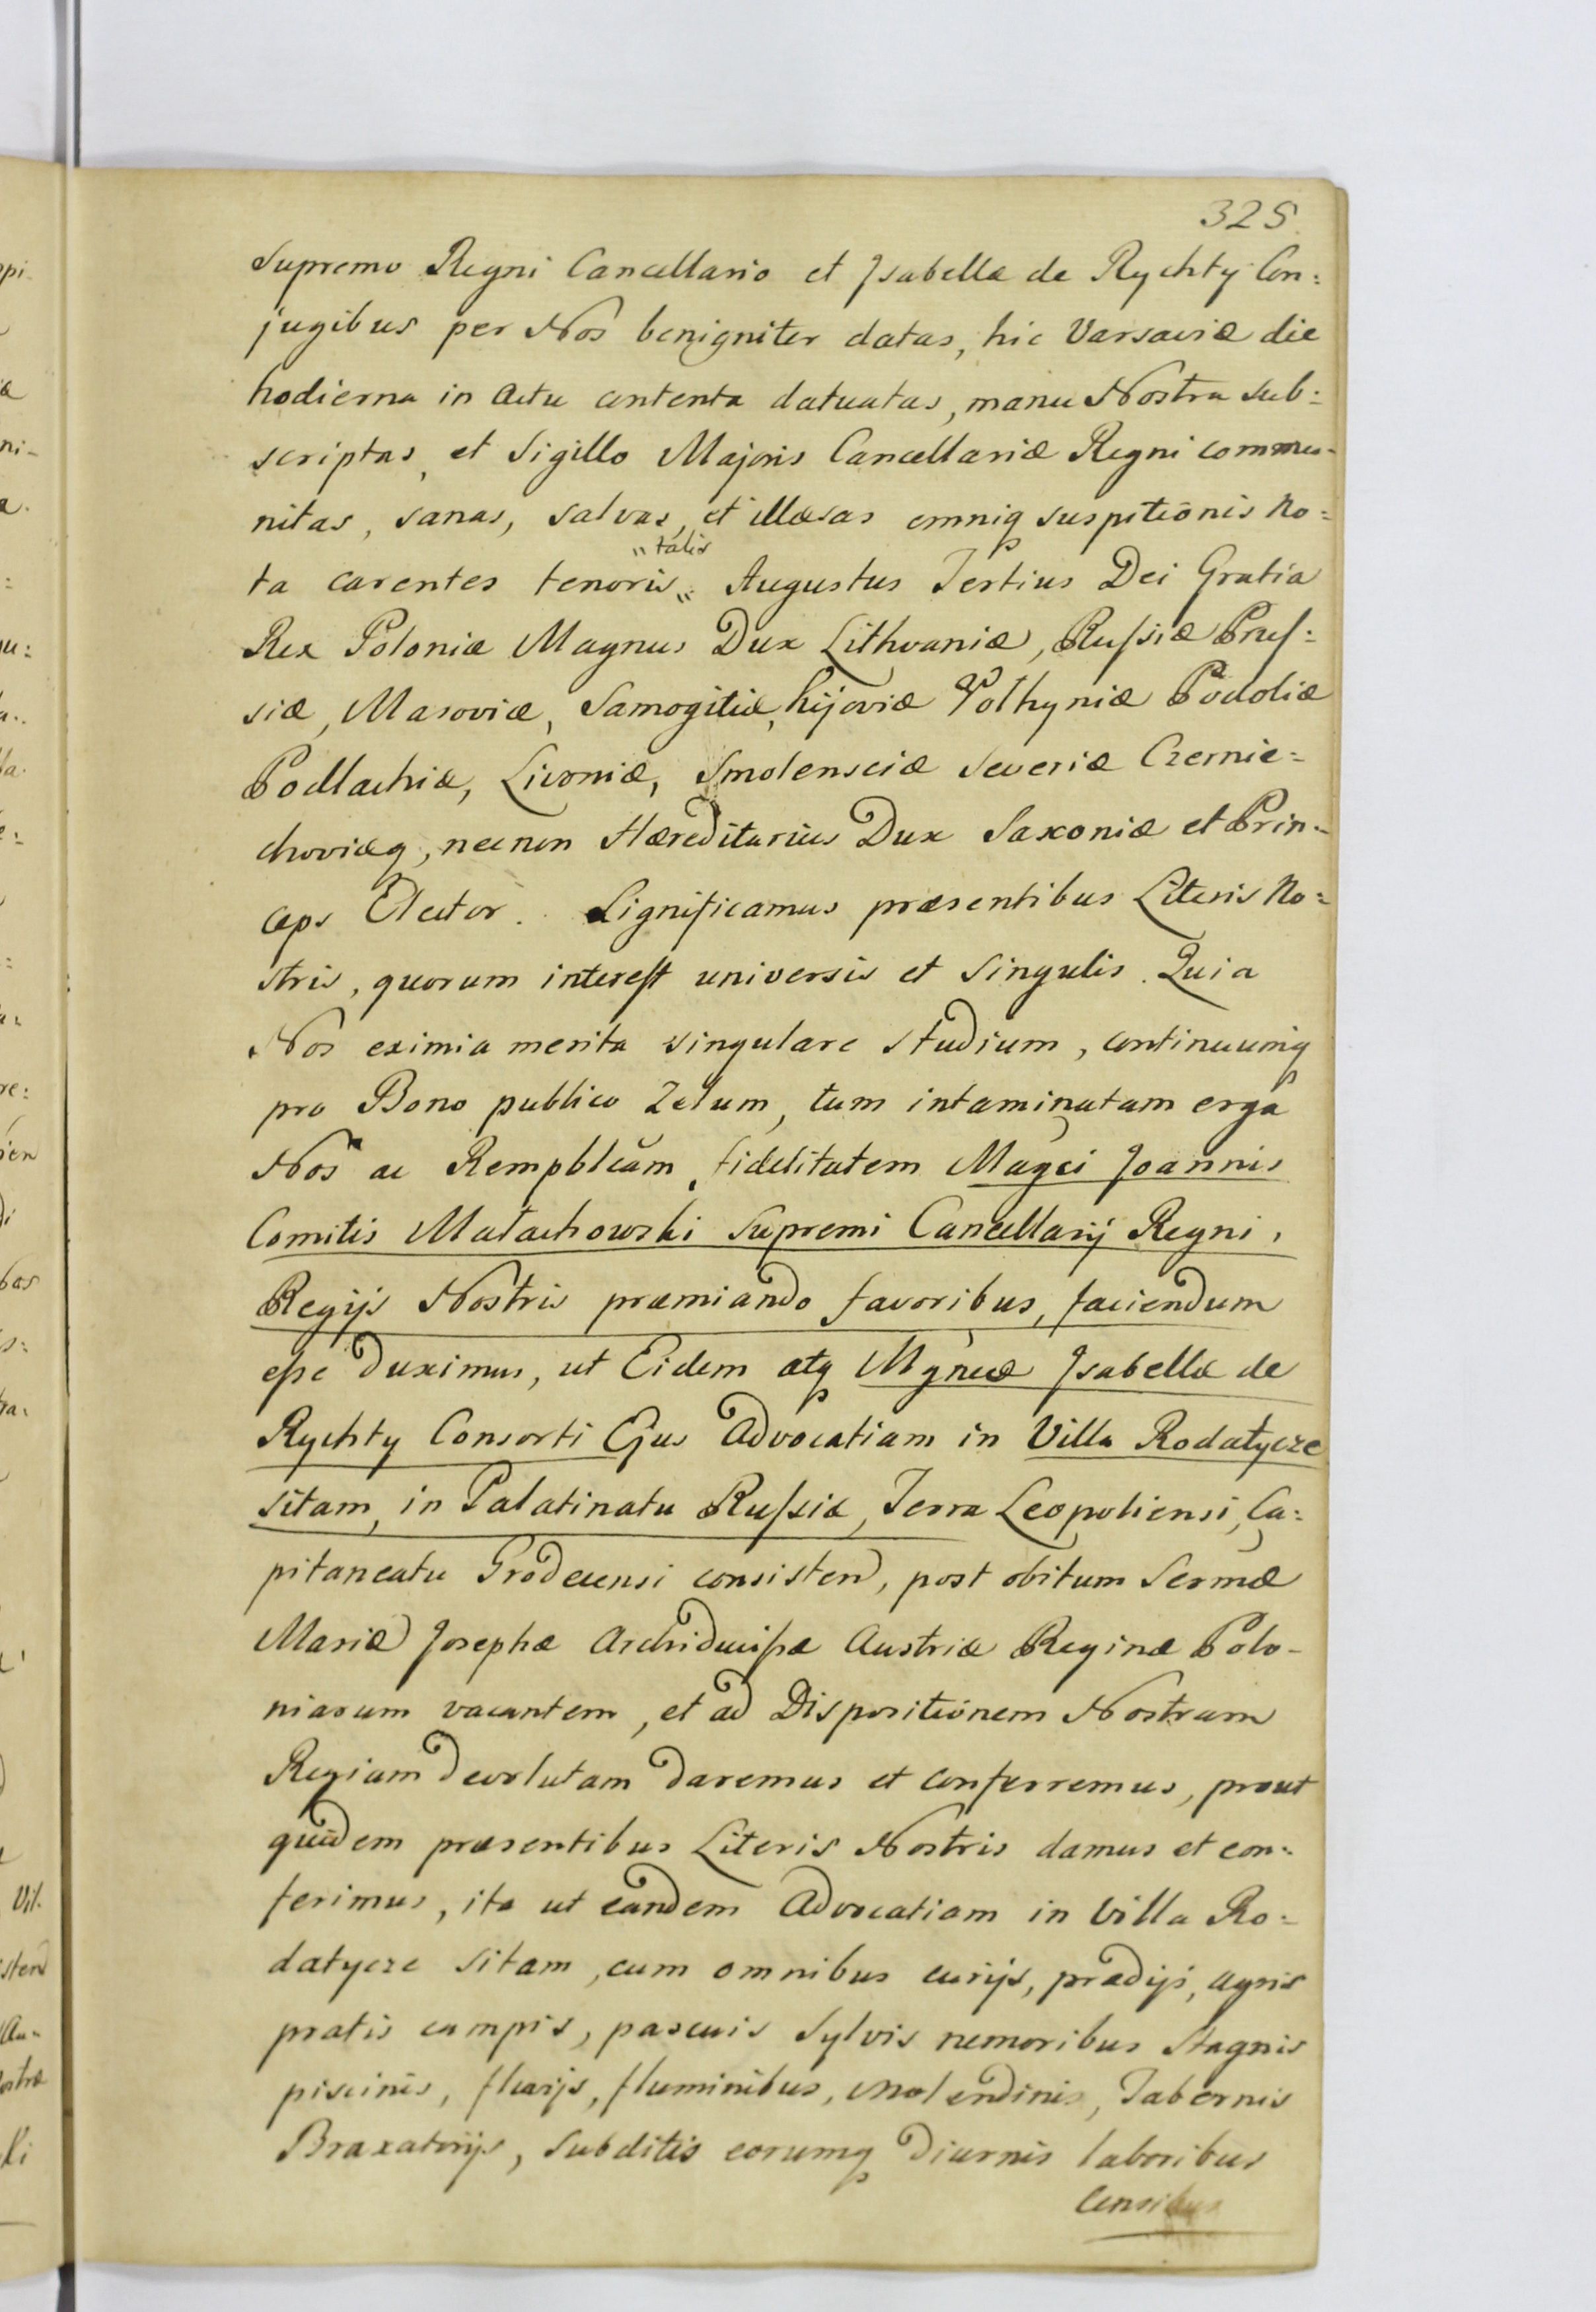 325.
Supremo Regni Cancellario et Isabellæ de Rychty Con:
jugibus per Nos benigniter datas, hic Varsaviæ die
hodierna in actu contenta datuatas, manu Nostra sub:
scriptas, et Sigillo Majoris Cancellariæ Regni commu-
nitas, sanas, salvas, et illæsas omniq suspitionis no:
„talis
ta carentes tenoris„ Augustus Tertius Dei Gratia
Rex Poloniæ Magnus Dux Lithvaniæ, Ruſsiæ Pruſ:
siæ, Masoviæ, Samogitiæ, Kijoviæ Volhyniæ Podoliæ
Podlachiæ, Livoniæ, Smolensciæ Severiæ Czernie:
choviæq, necnon Hæreditarius Dux Saxoniæ et Prin-
ceps Elector. Significamus præsentibus Literis No:
stris, quorum interest universis et singulis. Quia
Nos eximia merita singulare studium, continuumq
pro Bono publico Zelum, tum intaminatam erga
Nos ac Rempblcam, fidelitatem Magci Joannis
Comitis Małachowski Supremi Cancellarij Regni,
Regijs Nostris præmiando favoribus, faciendum
eſse duximus, ut Eidem atq Mgncæ Isabellæ de
Rychty Consorti Ejus Advocatiam in Villa Rodatycze
sitam, in Palatinatu Ruſsiæ, Terra Leopoliensi, Ca:
pitaneatu Grodecensi consisten, post obitum Sermæ
Mariæ Josephæ Archiduciſsæ Austriæ Reginæ Polo-
niarum vacantem, et ad Dispositionem Nostram
Regiam devolutam daremus et conferremus, prout
quidem præsentibus Literis Nostris damus et con:
ferimus, ita ut eandem Advocatiam in Villa Ro:
datycze sitam, cum omnibus curijs, prædijs, agris
pratis campis, pascuis Sylvis nemoribus Stagnis
piscinis, fluvijs, fluminibus, Molendinis, Tabernis
Braxatorijs, Subditis eorumq diurnis laboribus
Censibus